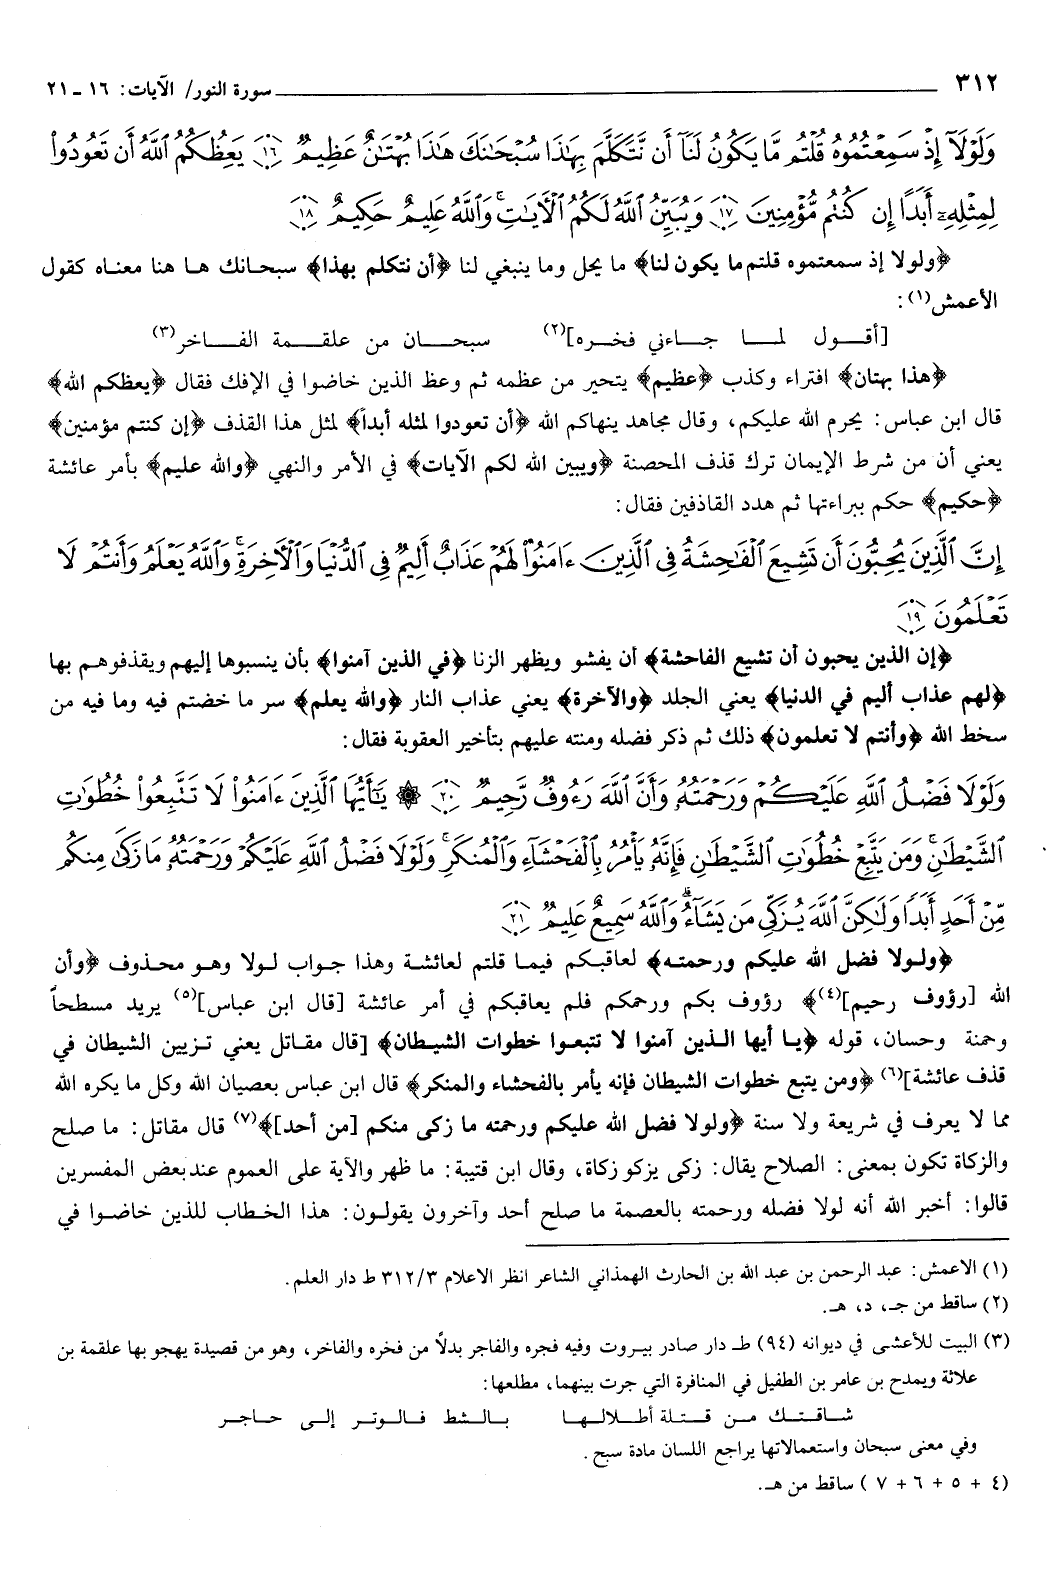 ٣١٢ سورة النور/ الآيات: ١٦ ـ ٢١
وَلَوْلَآ إِذْ سَمِعْتُمُوهُ قُلْتُم مَّا يَكُونُ لَنَآ أَن نَّتَكَلَّمَ بِهَٰذَا سُبْحَٰنَكَ هَٰذَا بُهْتَٰنٌ عَظِيمٌ ١٦ يَعِظُكُمُ ٱللَّهُ أَن تَعُودُوا۟
لِمِثْلِهِۦٓ أَبَدًا إِن كُنتُم مُّؤْمِنِينَ ١٧ وَيُبَيِّنُ ٱللَّهُ لَكُمُ ٱلْءَايَٰتِ ۚ وَٱللَّهُ عَلِيمٌ حَكِيمٌ ١٨
﴿ولولا إذ سمعتموه قلتم ما يكون لنا﴾ ما يحل وما ينبغي لنا ﴿أن نتكلم بهذا﴾ سبحانك ها هنا معناه كقول
الأعمش(١):
[أقول لما جاءني فخره](٢) سبحان من علقمة الفاخر(٣)
﴿هذا بهتان﴾ افتراء وكذب ﴿عظيم﴾ يتحير من عظمه ثم وعظ الذين خاضوا في الإفك فقال ﴿يعظكم الله﴾
قال ابن عباس: يحرم الله عليكم، وقال مجاهد ينهاكم الله ﴿أن تعودوا لمثله أبداً﴾ لمثل هذا القذف ﴿إن كنتم مؤمنين﴾
يعني أن من شرط الإيمان ترك قذف المحصنة ﴿ويبين الله لكم الآيات﴾ في الأمر والنهي ﴿والله عليم﴾ بأمر عائشة
﴿حكيم﴾ حكم ببراءتها ثم هدد القاذفين فقال:
إِنَّ ٱلَّذِينَ يُحِبُّونَ أَن تَشِيعَ ٱلْفَٰحِشَةُ فِى ٱلَّذِينَ ءَامَنُوا۟ لَهُمْ عَذَابٌ أَلِيمٌ فِى ٱلدُّنْيَا وَٱلْءَاخِرَةِ ۚ وَٱللَّهُ يَعْلَمُ وَأَنتُمْ لَا
تَعْلَمُونَ ١٩
﴿إن الذين يحبون أن تشيع الفاحشة﴾ أن يفشو ويظهر الزنا ﴿في الذين آمنوا﴾ بأن ينسبوها إليهم ويقذفوهم بها
﴿لهم عذاب أليم في الدنيا﴾ يعني الجلد ﴿والآخرة﴾ يعني عذاب النار ﴿والله يعلم﴾ سر ما خضتم فيه وما فيه من
سخط الله ﴿وأنتم لا تعلمون﴾ ذلك ثم ذكر فضله ومنته عليهم بتأخير العقوبة فقال:
وَلَوْلَا فَضْلُ ٱللَّهِ عَلَيْكُمْ وَرَحْمَتُهُۥ وَأَنَّ ٱللَّهَ رَءُوفٌ رَّحِيمٌ ٢٠ ۞ يَٰٓأَيُّهَا ٱلَّذِينَ ءَامَنُوا۟ لَا تَتَّبِعُوا۟ خُطُوَٰتِ
ٱلشَّيْطَٰنِ ۚ وَمَن يَتَّبِعْ خُطُوَٰتِ ٱلشَّيْطَٰنِ فَإِنَّهُۥ يَأْمُرُ بِٱلْفَحْشَآءِ وَٱلْمُنكَرِ ۚ وَلَوْلَا فَضْلُ ٱللَّهِ عَلَيْكُمْ وَرَحْمَتُهُۥ مَا زَكَىٰ مِنكُم
مِّنْ أَحَدٍ أَبَدًا وَلَٰكِنَّ ٱللَّهَ يُزَكِّى مَن يَشَآءُ ۗ وَٱللَّهُ سَمِيعٌ عَلِيمٌ ٢١
﴿ولولا فضل الله عليكم ورحمته﴾ لعاقبكم فيما قلتم لعائشة وهذا جواب لولا وهو محذوف ﴿وأن
الله [رؤوف رحيم](٤)﴾ رؤوف بكم ورحمكم فلم يعاقبكم في أمر عائشة [قال ابن عباس](٥) يريد مسطحاً
وحمنة وحسان، قوله ﴿يا أيها الذين آمنوا لا تتبعوا خطوات الشيطان﴾ [قال مقاتل يعني تزيين الشيطان في
قذف عائشة](٦) ﴿ومن يتبع خطوات الشيطان فإنه يأمر بالفحشاء والمنكر﴾ قال ابن عباس بعصيان الله وكل ما يكره الله
مما لا يعرف في شريعة ولا سنة ﴿ولولا فضل الله عليكم ورحمته ما زكى منكم [من أحد]﴾(٧) قال مقاتل: ما صلح
والزكاة تكون بمعنى: الصلاح يقال: زكى يزكو زكاة، وقال ابن قتيبة: ما ظهر والآية على العموم عند بعض المفسرين
قالوا: أخبر الله أنه لولا فضله ورحمته بالعصمة ما صلح أحد وآخرون يقولون: هذا الخطاب للذين خاضوا في
(١) الاعمش: عبد الرحمن بن عبد الله بن الحارث الهمذاني الشاعر انظر الاعلام ٣١٢/٣ ط دار العلم.
(٢) ساقط من جـ، د، هـ.
(٣) البيت للأعشى في ديوانه (٩٤) طـ دار صادر بيروت وفيه فجره والفاجر بدلاً من فخره والفاخر، وهو من قصيدة يهجو بها علقمة بن
علاثة ويمدح بن عامر بن الطفيل في المنافرة التي جرت بينهما، مطلعها:
شاقتك من قتلة أطلالها بالشط فالوتر إلى حاجر
وفي معنى سبحان واستعمالاتها يراجع اللسان مادة سبح.
(٤ + ٥ + ٦ + ٧ ) ساقط من هـ.